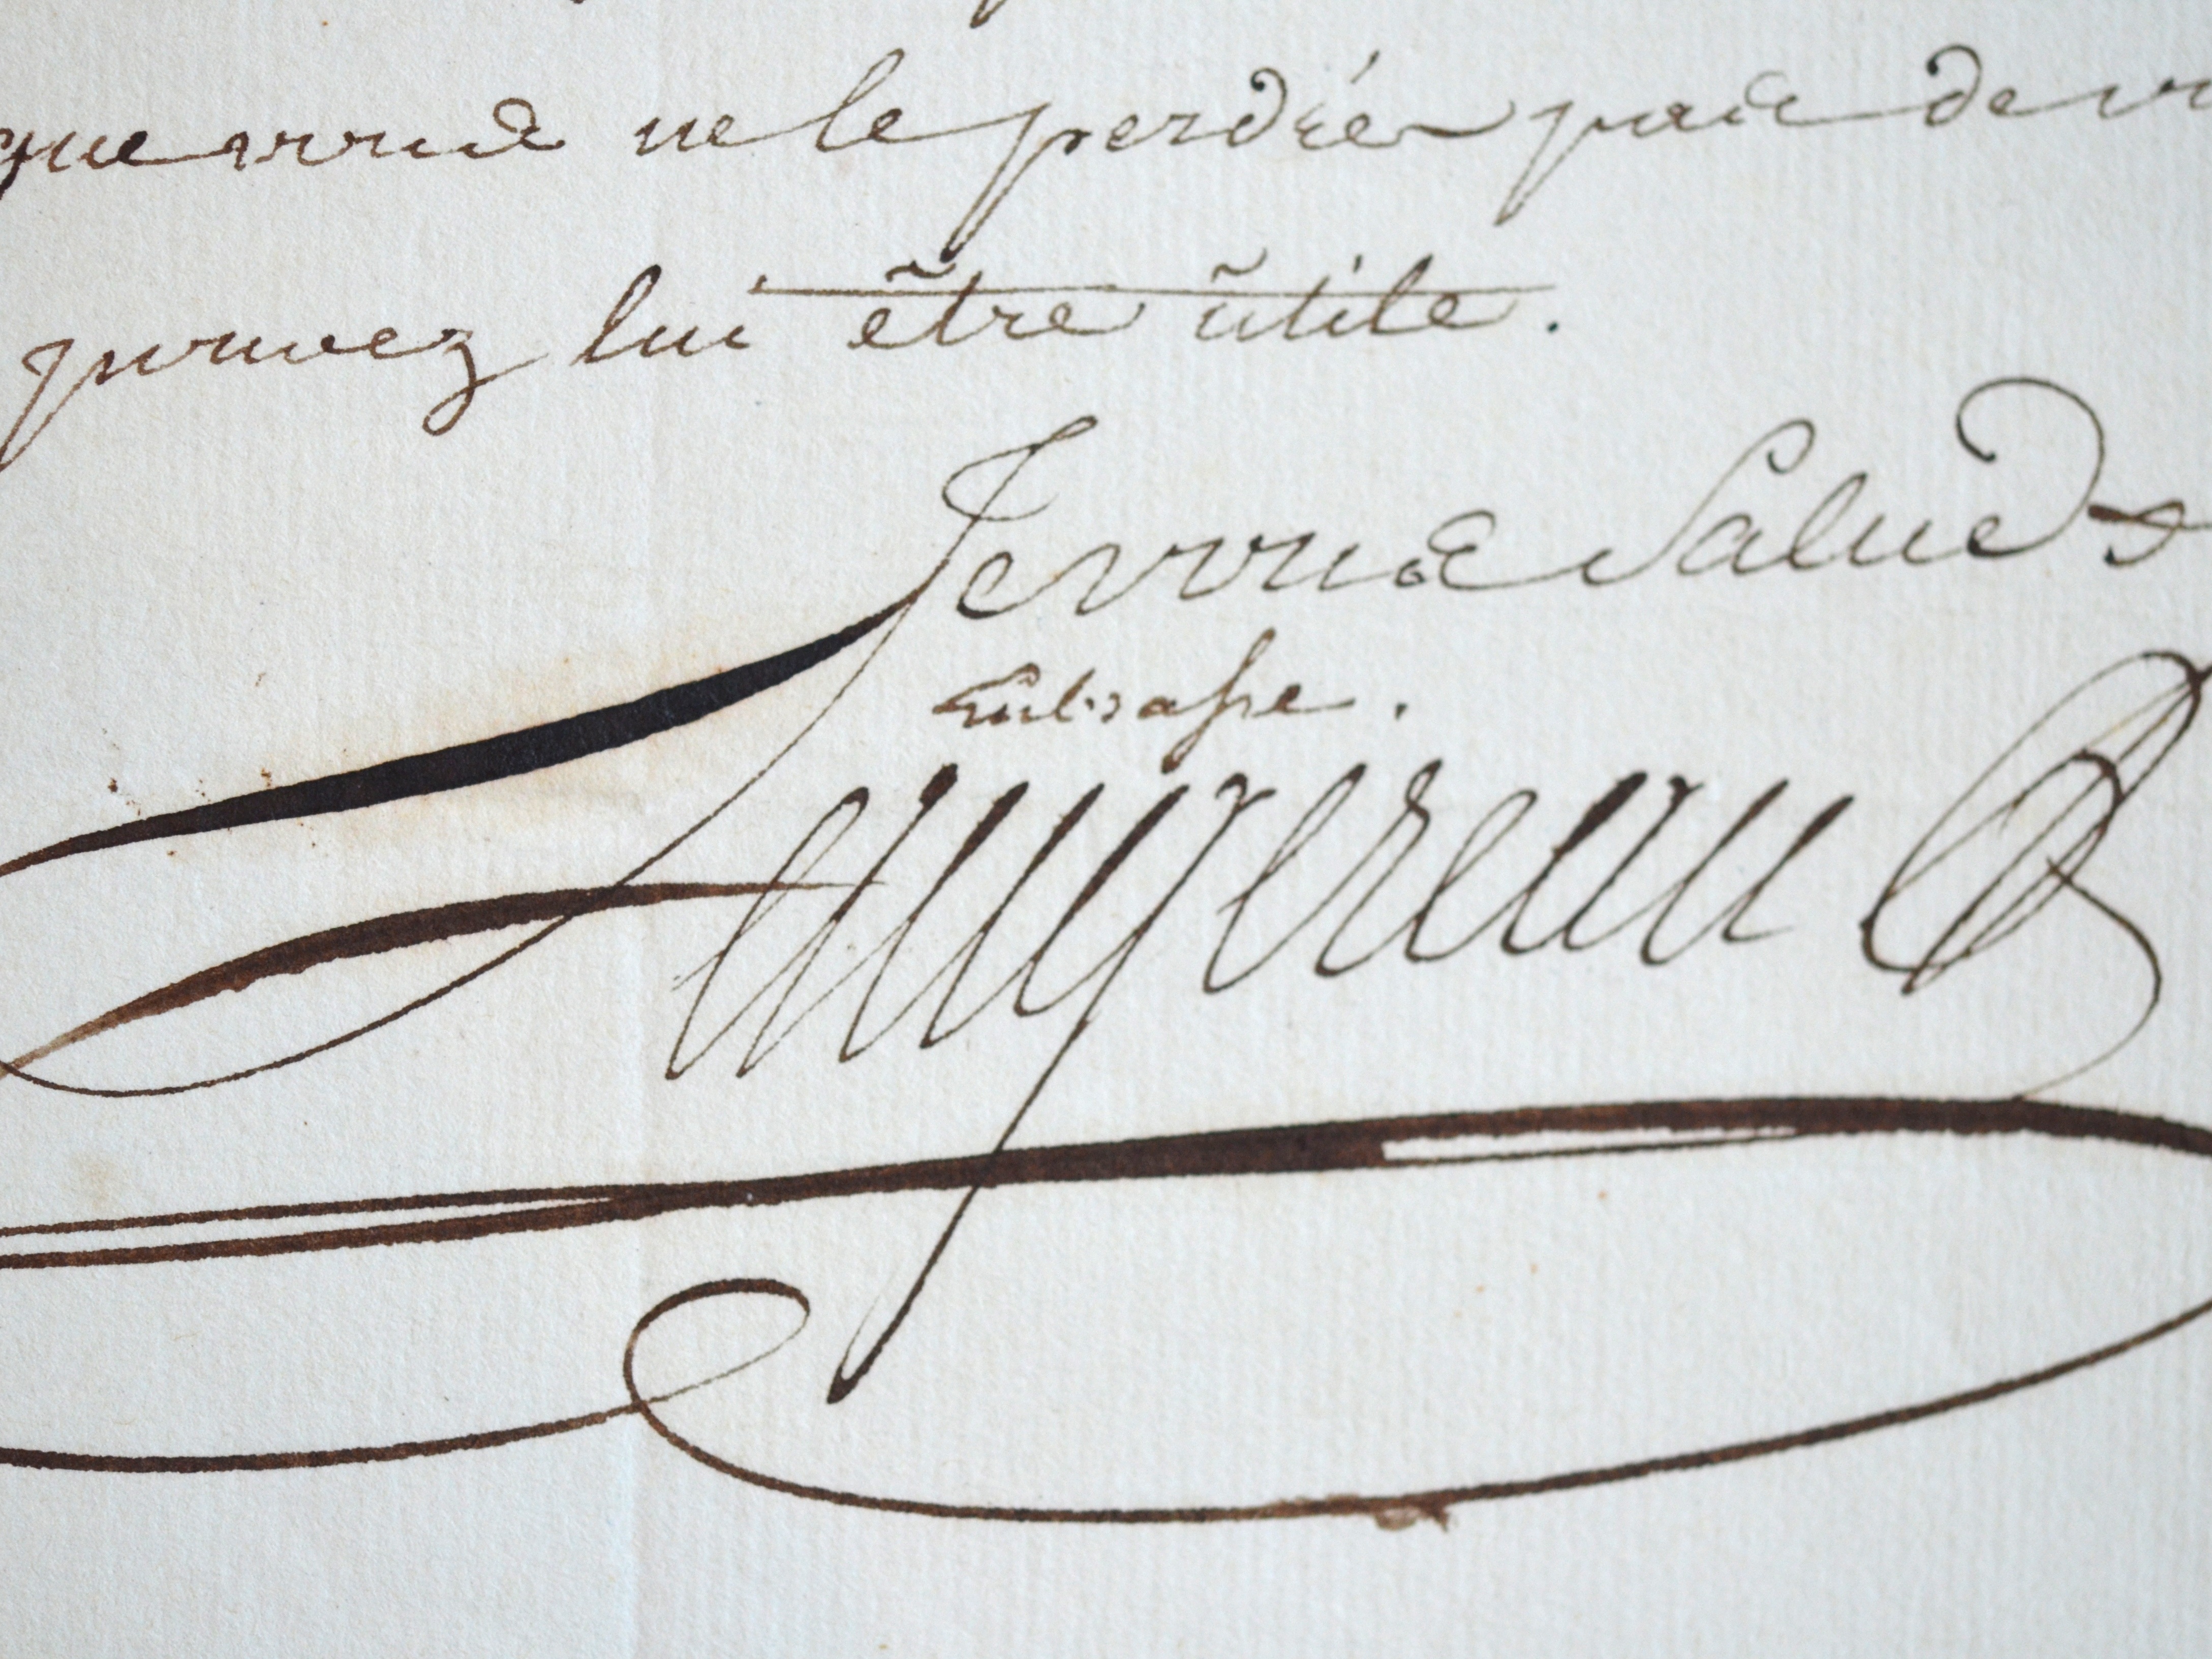 que vous ne le perdiés pas de v
pouvez lui être utile.
Je vous Salue &
Embrasse.
Augereau